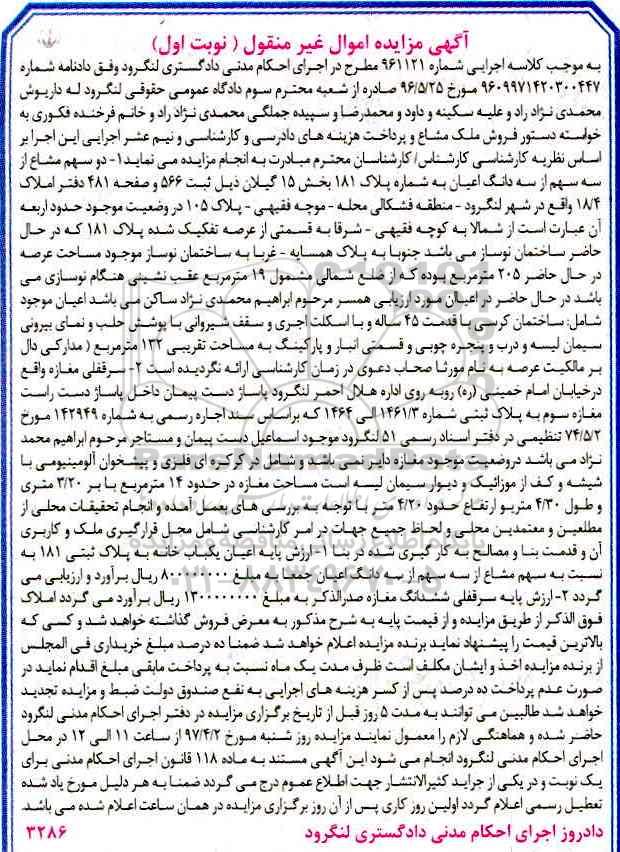 آگهی مزایده اموال غیر منقول ( نوبت اول)
به موجب کلاسه اجرایی شماره ۹۶۱۱۲۱ مطرح در اجرای احکام مدنی دادگستری لنگرود وفق دادنامه شماره
۹۶۰۹۹۷۱۴۲۰۳۰۰۴۴۷ مورخ ۹۶/۵/۲۵ صادره از شعبه محترم سوم دادگاه عمومی حقوقی لنگرود له داریوش
محمدی نژاد راد و علیه سکینه و داود و محمدرضا و سپیده جملگی محمدی نژاد راد و خانم فرخنده فکوری به
خواسته دستور فروش ملک مشاع و پرداخت هزینه های دادرسی و کارشناسی و نیم عشر اجرایی این اجرا بر
اساس نظریه کارشناسی کارشناس/ کارشناسان محترم مبادرت به انجام مزایده می نماید۱- دو سهم مشاع از
سه سهم از سه دانگ اعیان به شماره پلاک ۱۸۱ بخش ۱۵ گیلان ذیل ثبت ۵۶۶ و صفحه ۴۸۱ دفتر املاک
۱۸/۴ واقع در شهر لنگرود - منطقه فشکالی محله - موچه فقیهی - پلاک ۱۰۵ در وضعیت موجود حدود اربعه
آن عبارت است از شمالا به کوچه فقیهی - شرقا به قسمتی از عرصه تفکیک شده پلاک ۱۸۱ که در حال
حاضر ساختمان نوساز می باشد جنوبا به پلاک همسایه - غربا به ساختمان نوساز موجود مساحت عرصه
در حال حاضر ۲۰۵ مترمربع بوده که از ضلع شمالی مشمول ۱۹ مترمربع عقب نشینی هنگام نوسازی می
باشد در حال حاضر در اعیان مورد ارزیابی همسر مرحوم ابراهیم محمدی نژاد ساکن می باشد اعیان موجود
شامل: ساختمان کرسی با قدمت ۴۵ ساله و با اسکلت اجری و سقف شیروانی با پوشش حلب و نمای بیرونی
سیمان لیسه و درب و پنجره چوبی و قسمتی انبار و پارکینگ به مساحت تقریبی ۱۳۲ مترمربع ( مدارکی دال
بر مالکیت عرصه به نام مورثا صحاب دعوی در زمان کارشناسی ارائه نگردیده است ۲- سرقفلی مغازه واقع
درخیابان امام خمینی (ره) روبه روی اداره هلال احمر لنگرود پاساژ دست پیمان داخل پاساژ دست راست
مغازه سوم به پلاک ثبتی شماره ۱۴۶۱/۳ الی ۱۴۶۴ که براساس سند اجاره رسمی به شماره ۱۴۲۹۴۹ مورخ
۷۴/۵/۲ تنظیمی در دفتر اسناد رسمی ۵۱ لنگرود موجود اسماعیل دست پیمان و مستاجر مرحوم ابراهیم محمد
نژاد می باشد دروضعیت موجود مغازه دایر نمی باشد و شامل در کرکره ای فلزی و پیشخوان آلومینیومی با
شیشه و کف از موزائیک و دیوار سیمان لیسه است مساحت مغازه در حدود ۱۴ مترمربع با بر ۳/۲۰ متری
و طول ۴/۳۰ مترو ارتفاع حدود ۴/۲۰ متر با توجه به بررسی های بعمل آمده و انجام تحقیقات محلی از
مطلعین و معتمدین محلی و لحاظ جمیع جهات در امر کارشناسی شامل محل قرارگیری ملک و کاربری
آن و قدمت بنا و مصالح به کار گیری شده در بنا ۱- ارزش پایه اعیان یکباب خانه به پلاک ثبتی ۱۸۱ به
نسبت به سهم مشاع از سه سهم از سه دانگ اعیان جمعا به مبلغ ۸۰۰۰۰۰۰۰۰ ریال برآورد و ارزیابی می
گردد ۲- ارزش پایه سرقفلی ششدانگ مغازه صدرالذکر به مبلغ ۱۳۰۰۰۰۰۰۰۰ ریال برآورد می گردد املاک
فوق الذکر از طریق مزایده و از قیمت پایه به شرح مذکور به معرض فروش گذاشته خواهد شد و کسی که
بالاترین قیمت را پیشنهاد نماید برنده مزایده اعلام خواهد شد ضمنا ده درصد مبلغ خریداری فی المجلس
از برنده مزایده اخذ و ایشان مکلف است ظرف مدت یک ماه نسبت به پرداخت مابقی مبلغ اقدام نماید در
صورت عدم پرداخت ده درصد پس از کسر هزینه های اجرایی به نفع صندوق دولت ضبط و مزایده تجدید
خواهد شد طالبین می توانند به مدت ۵ روز قبل از تاریخ برگزاری مزایده در دفتر اجرای احکام مدنی لنگرود
حاضر شده و هماهنگی لازم را معمول نمایند مزایده روز شنبه مورخ ۹۷/۴/۲ از ساعت ۱۱ الی ۱۲ در محل
اجرای احکام مدنی لنگرود انجام می شود این آگهی مستند به ماده ۱۱۸ قانون اجرای احکام مدنی برای
یک نوبت و در یکی از جراید کثیرالانتشار جهت اطلاع عموم درج می گردد ضمنا به هر دلیل مورخ یاد شده
تعطیل رسمی اعلام گردد اولین روز کاری پس از آن روز برگزاری مزایده در همان ساعت اعلام شده می باشد.
دادروز اجرای احکام مدنی دادگستری لنگرود ۳۲۸۶